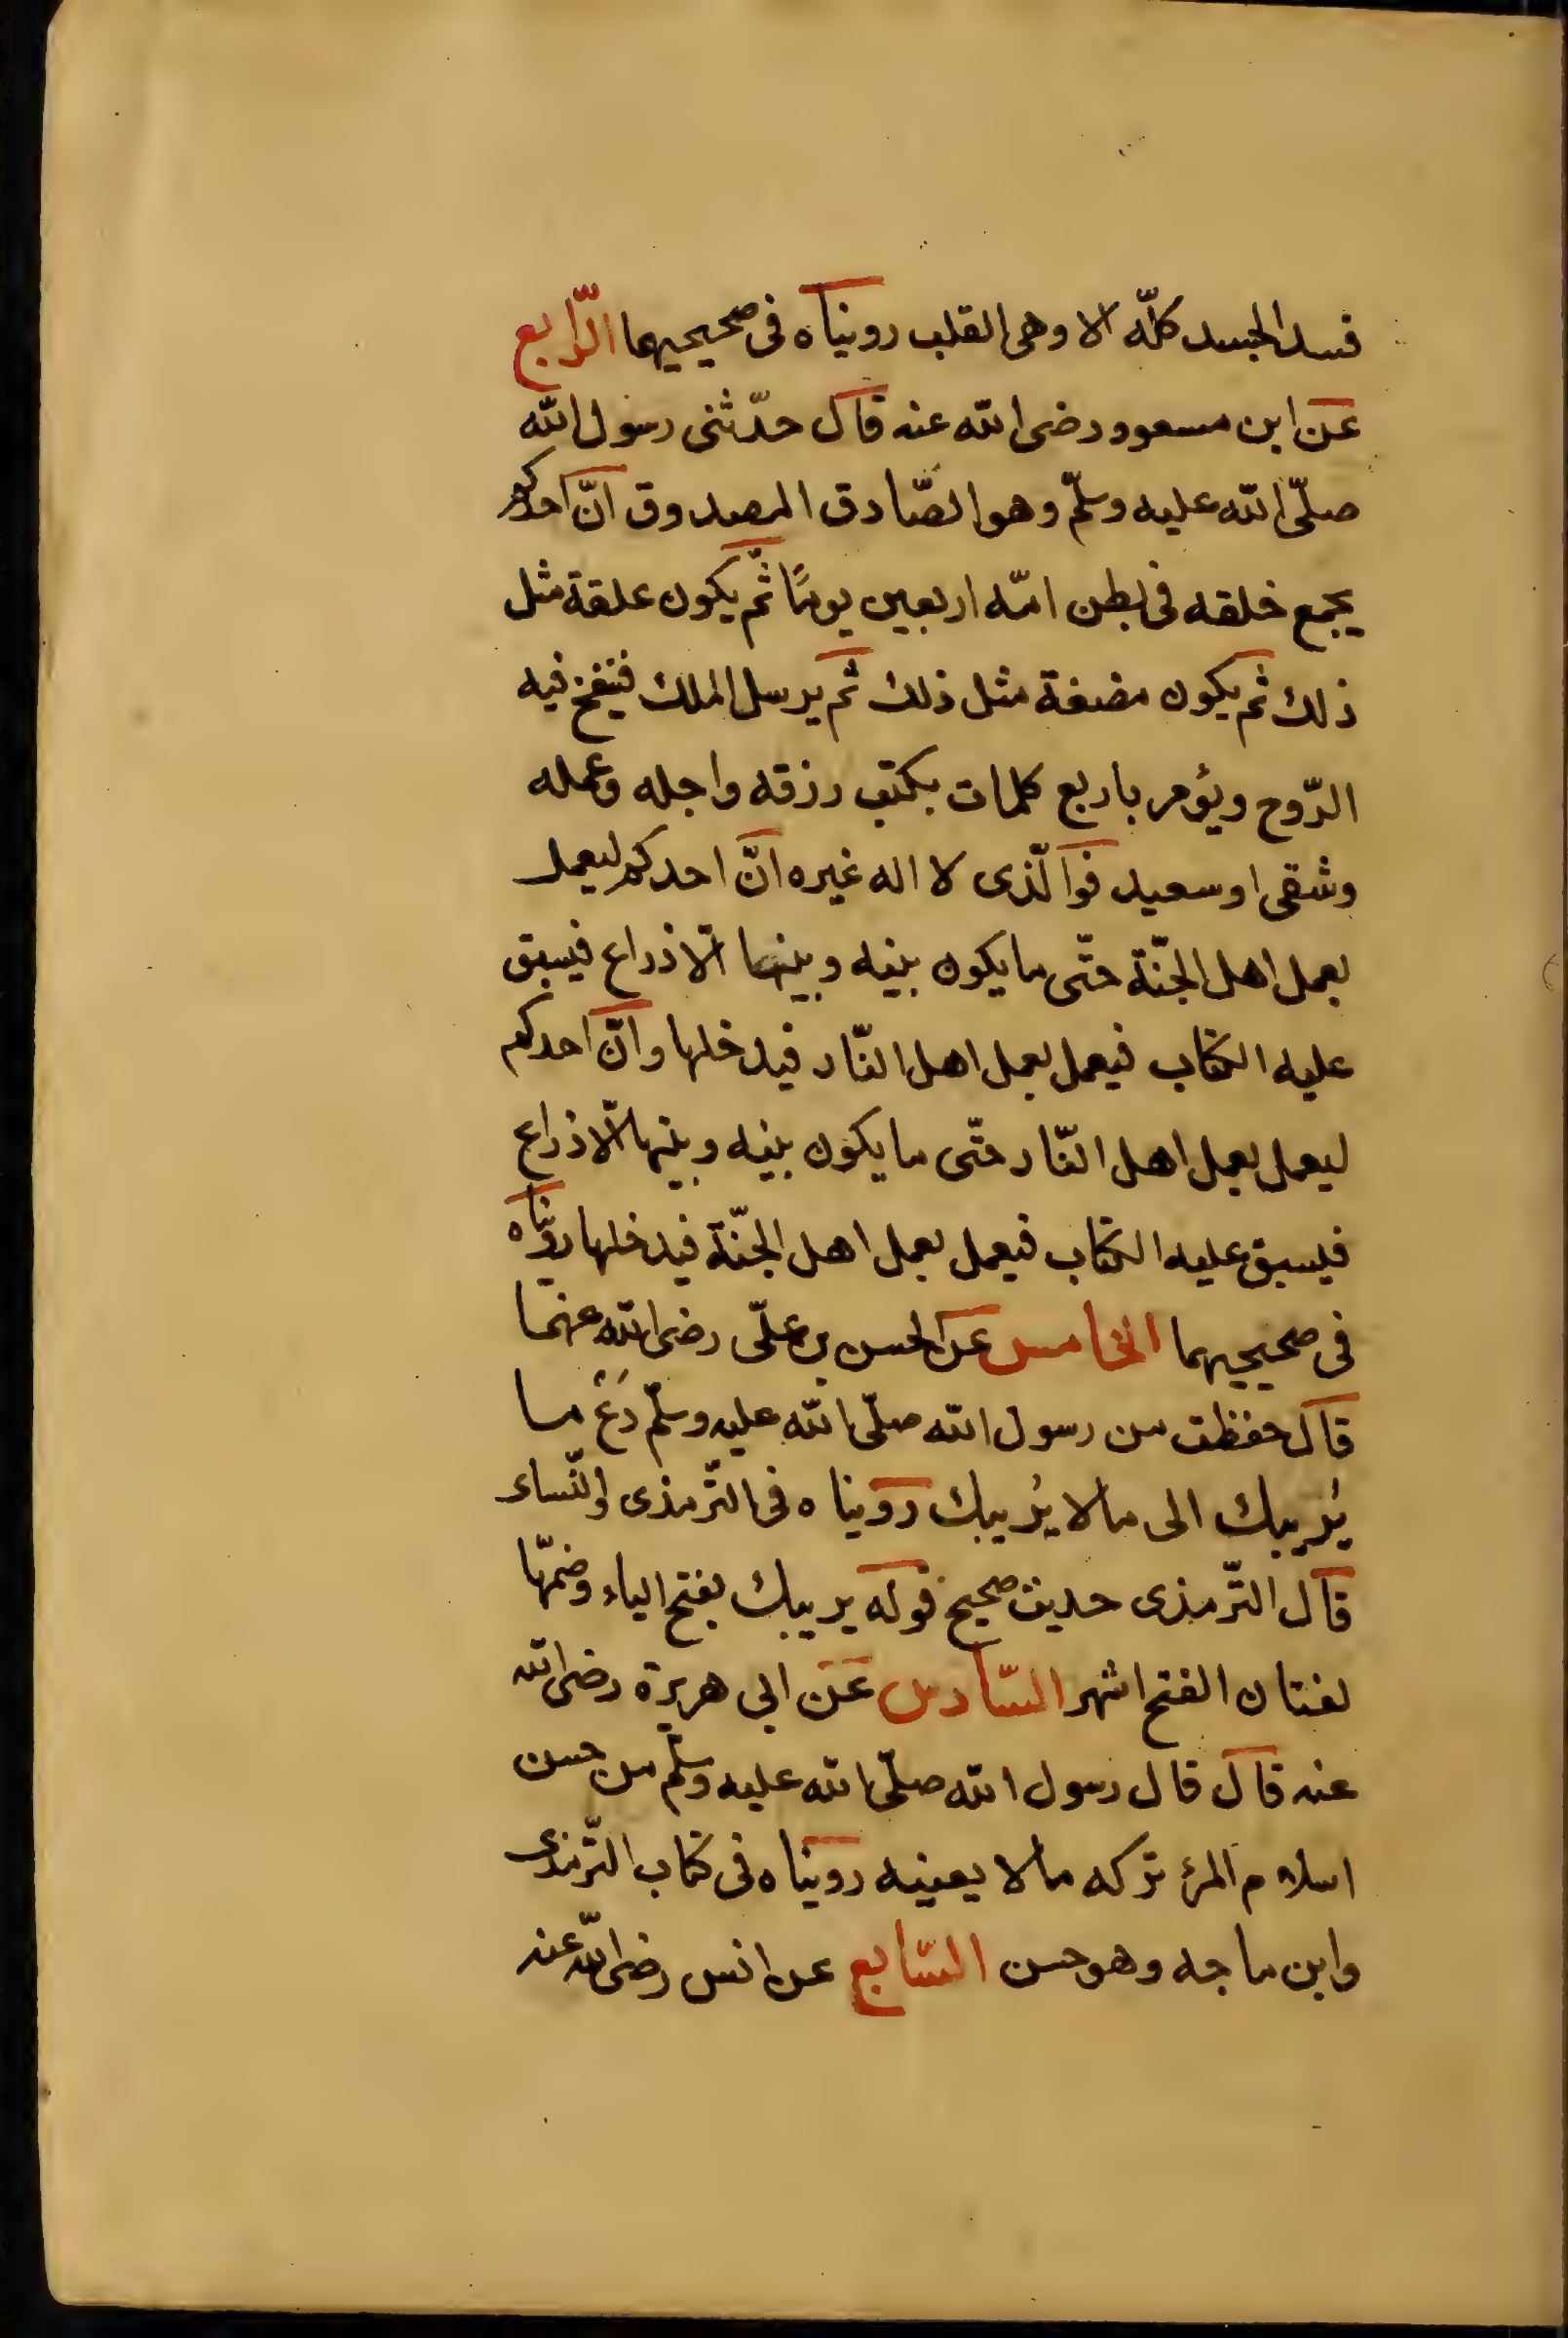 فسد الجسد كلّه الا وهى القلب رويناه فى صحيحيهما الرّابع
عن ابن مسعود رضى الله عنه قال حدّثنى رسول الله
صلّى الله عليه وسلّم وهو الصّادق المصدوق انّ احدكم
يجمع خلقه فى بطن امّه اربعين يومًا ثمّ يكون علقة مثل
ذلك ثم يكون مضغة مثل ذلك ثم يرسل الملك فينفخ فيه
الرّوح ويؤمر باربع كلمات بكتب رزقه واجله وعمله
وشقى او سعيد فوالّذى لا اله غيره انّ احدكم ليعمل
بعمل اهل الجنّة حتّى ما يكون بينه وبينها الّا ذراع فيسبق
عليه الكتاب فيعمل بعمل اهل النّار فيدخلها وانّ احدكم
ليعمل بعمل اهل النّار حتّى ما يكون بينه وبينها الّا ذراع
فيسبق عليه الكتاب فيعمل بعمل اهل الجنّة فيدخلها رويناه
فى صحيحيهما الخامس عن الحسن بن علىّ رضى الله عنهما
قال حفظت من رسول الله صلّى الله عليه وسلّم دَعْ ما
يُريبك الى ما لا يُريبك رويناه فى التّرمذى والنّساء
قال التّرمذى حديث صحيح قوله يريبك بفتح الياء وضمّها
لغتان الفتح اشهر السّادس عَن ابى هريرة رضى الله
عنه قال قال رسول الله صلّى الله عليه وسلّم من حسن
اسلام المرئ تركه ما لا يعينه رويناه فى كتاب التّرمذى
وابن ماجه وهو حسن السّابع عن انس رضى الله عنه